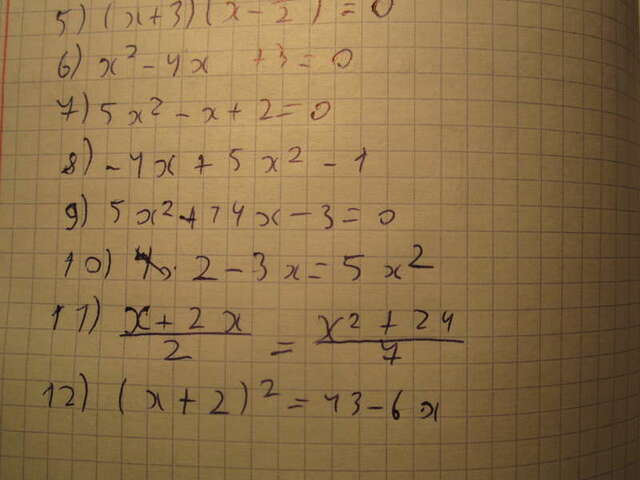 5) (x+3)(x-2)=0
6) x² - 4x + 3 = 0
7) 5x² - x + 2 = 0
8) -4x + 5x² - 1
9) 5x² + 14x - 3 = 0
10) 2 - 3x = 5x²
11) x + 2x / 2 = x² + 24 / 7
12) (x + 2)² = 43 - 6x